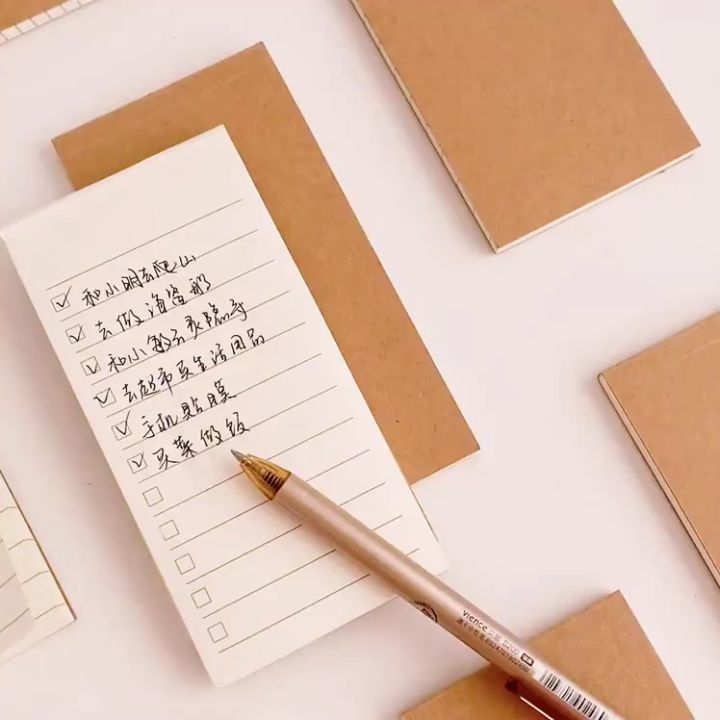 和小明去爬山
去做海盗船
和小敏去灵隐寺
去超市买生活用品
手机贴膜
买菜做饭
vience